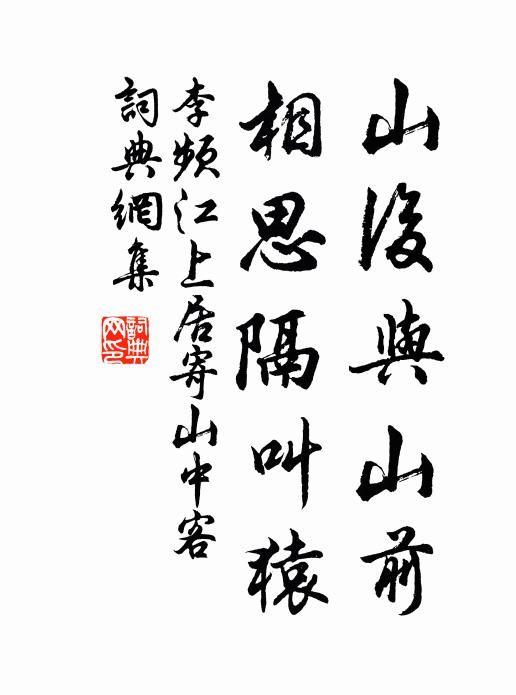 山後與山前
相思隔叫猿
李頻江上居寄山中客
詞典網集
詞典網印